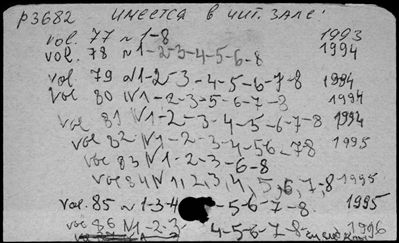 р3682 имеется в чит. зале:
vol. 77 N 1-8 1993
vol. 78 N 1-2-3-4-5-6-8 1994
vol. 79 N 1-2-3-4-5-6-7-8 1994
vol 80 N 1-2-3-5-6-7-8 1994
vol 81 N 1-2-3-4-5-6-7-8 1994
vol 82 N 1-2-3-4-5-6-7-8 1995
vol 83 N 1-2-3-6-8
vol 84 N 1, 2, 3, 4, 5, 6, 7, 8 1995
vol. 85 N 1-3-4-5-6-7-8 1995
vol 86 N 1-2-3-4-5-6-7-8 1996